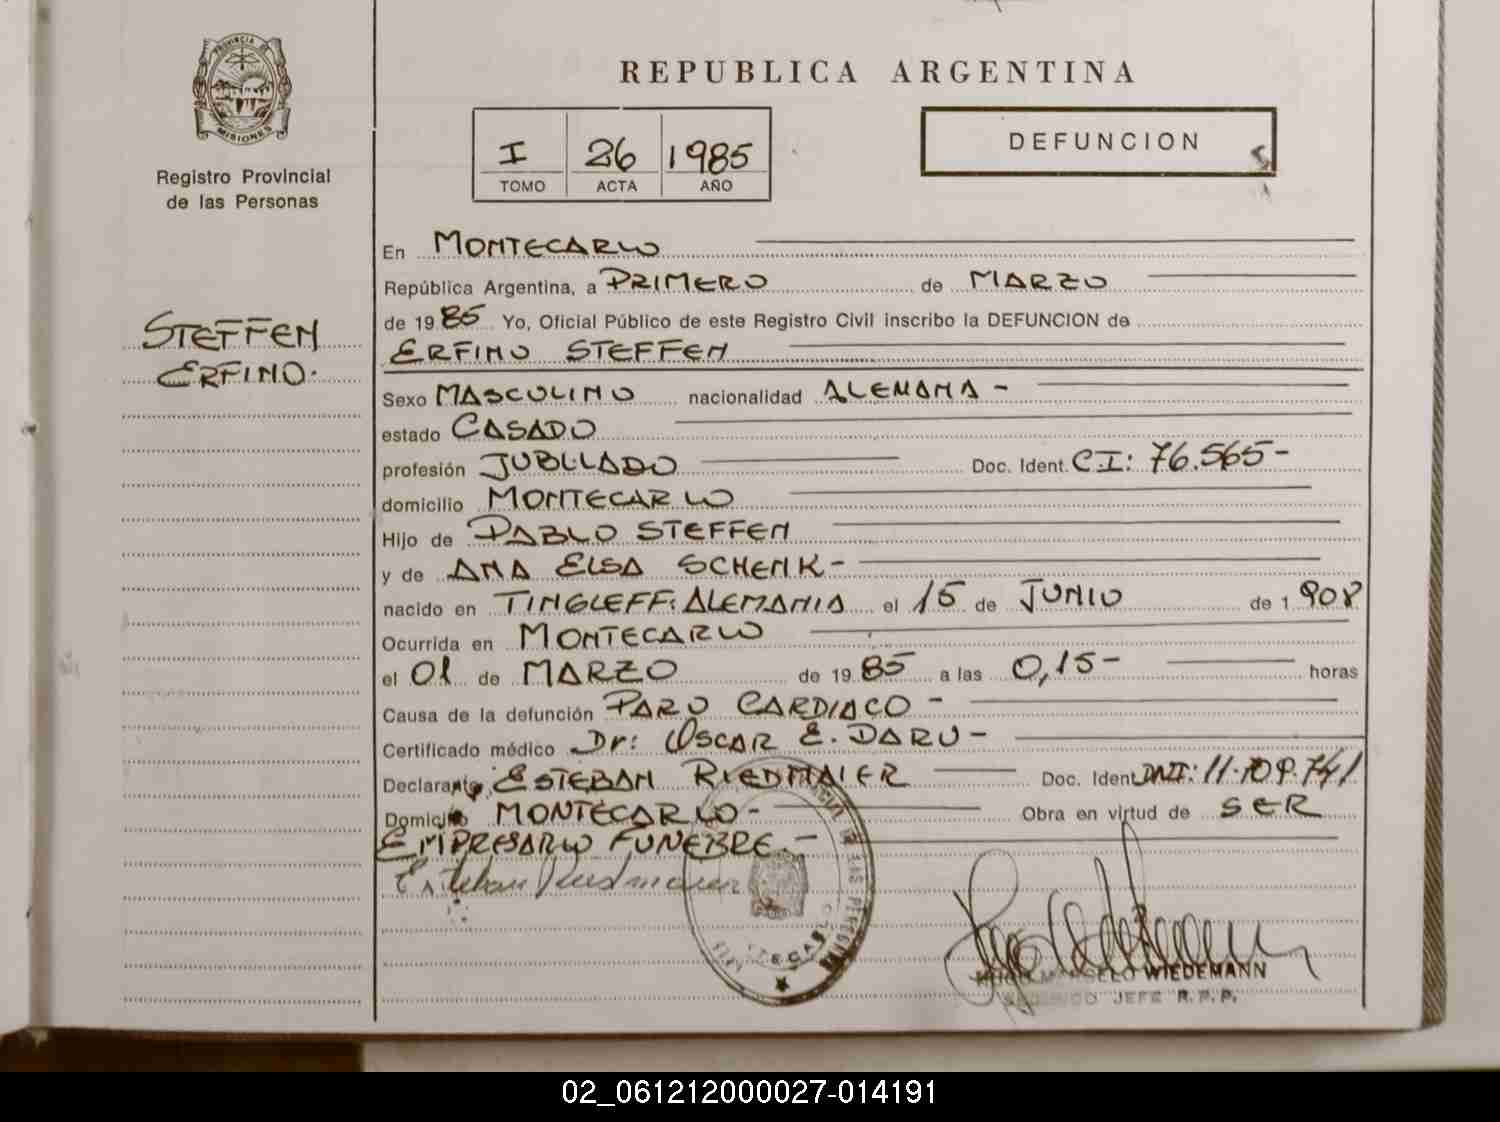 PROVINCIA DE
MISIONES
Registro Provincial
de las Personas
STEFFEN
ERFINO.
REPUBLICA ARGENTINA
I 26 1985
TOMO ACTA AÑO
DEFUNCION
En MONTECARLO
República Argentina, a PRIMERO de MARZO
de 1985 Yo, Oficial Público de este Registro Civil inscribo la DEFUNCION de
ERFINO STEFFEN
Sexo MASCULINO nacionalidad ALEMANA -
estado CASADO
profesión JUBILADO Doc. Ident. CI: 76.565-
domicilio MONTECARLO
Hijo de PABLO STEFFEN
y de ANA ELSA SCHENK-
nacido en TINGLEFF: ALEMANIA el 15 de JUNIO de 1908
Ocurrida en MONTECARLO
el 01 de MARZO de 1985 a las 0,15- horas
Causa de la defunción PARO CARDIACO -
Certificado médico Dr: OSCAR E. DARU-
Declarante, ESTEBAN RIEDMAIER Doc. Ident DNI: 11.109.741
Domicilio MONTECARLO- Obra en virtud de SER
EMPRESARIO FUNEBRE.-
Esteban Riedmaier
HUGO MARCELO WIEDEMANN
JEFE R.P.P.
02_061212000027-014191